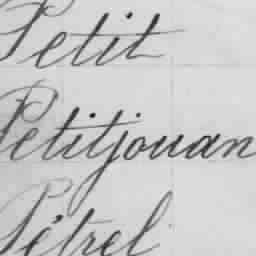 Petit
Petitjouan
Pétrel